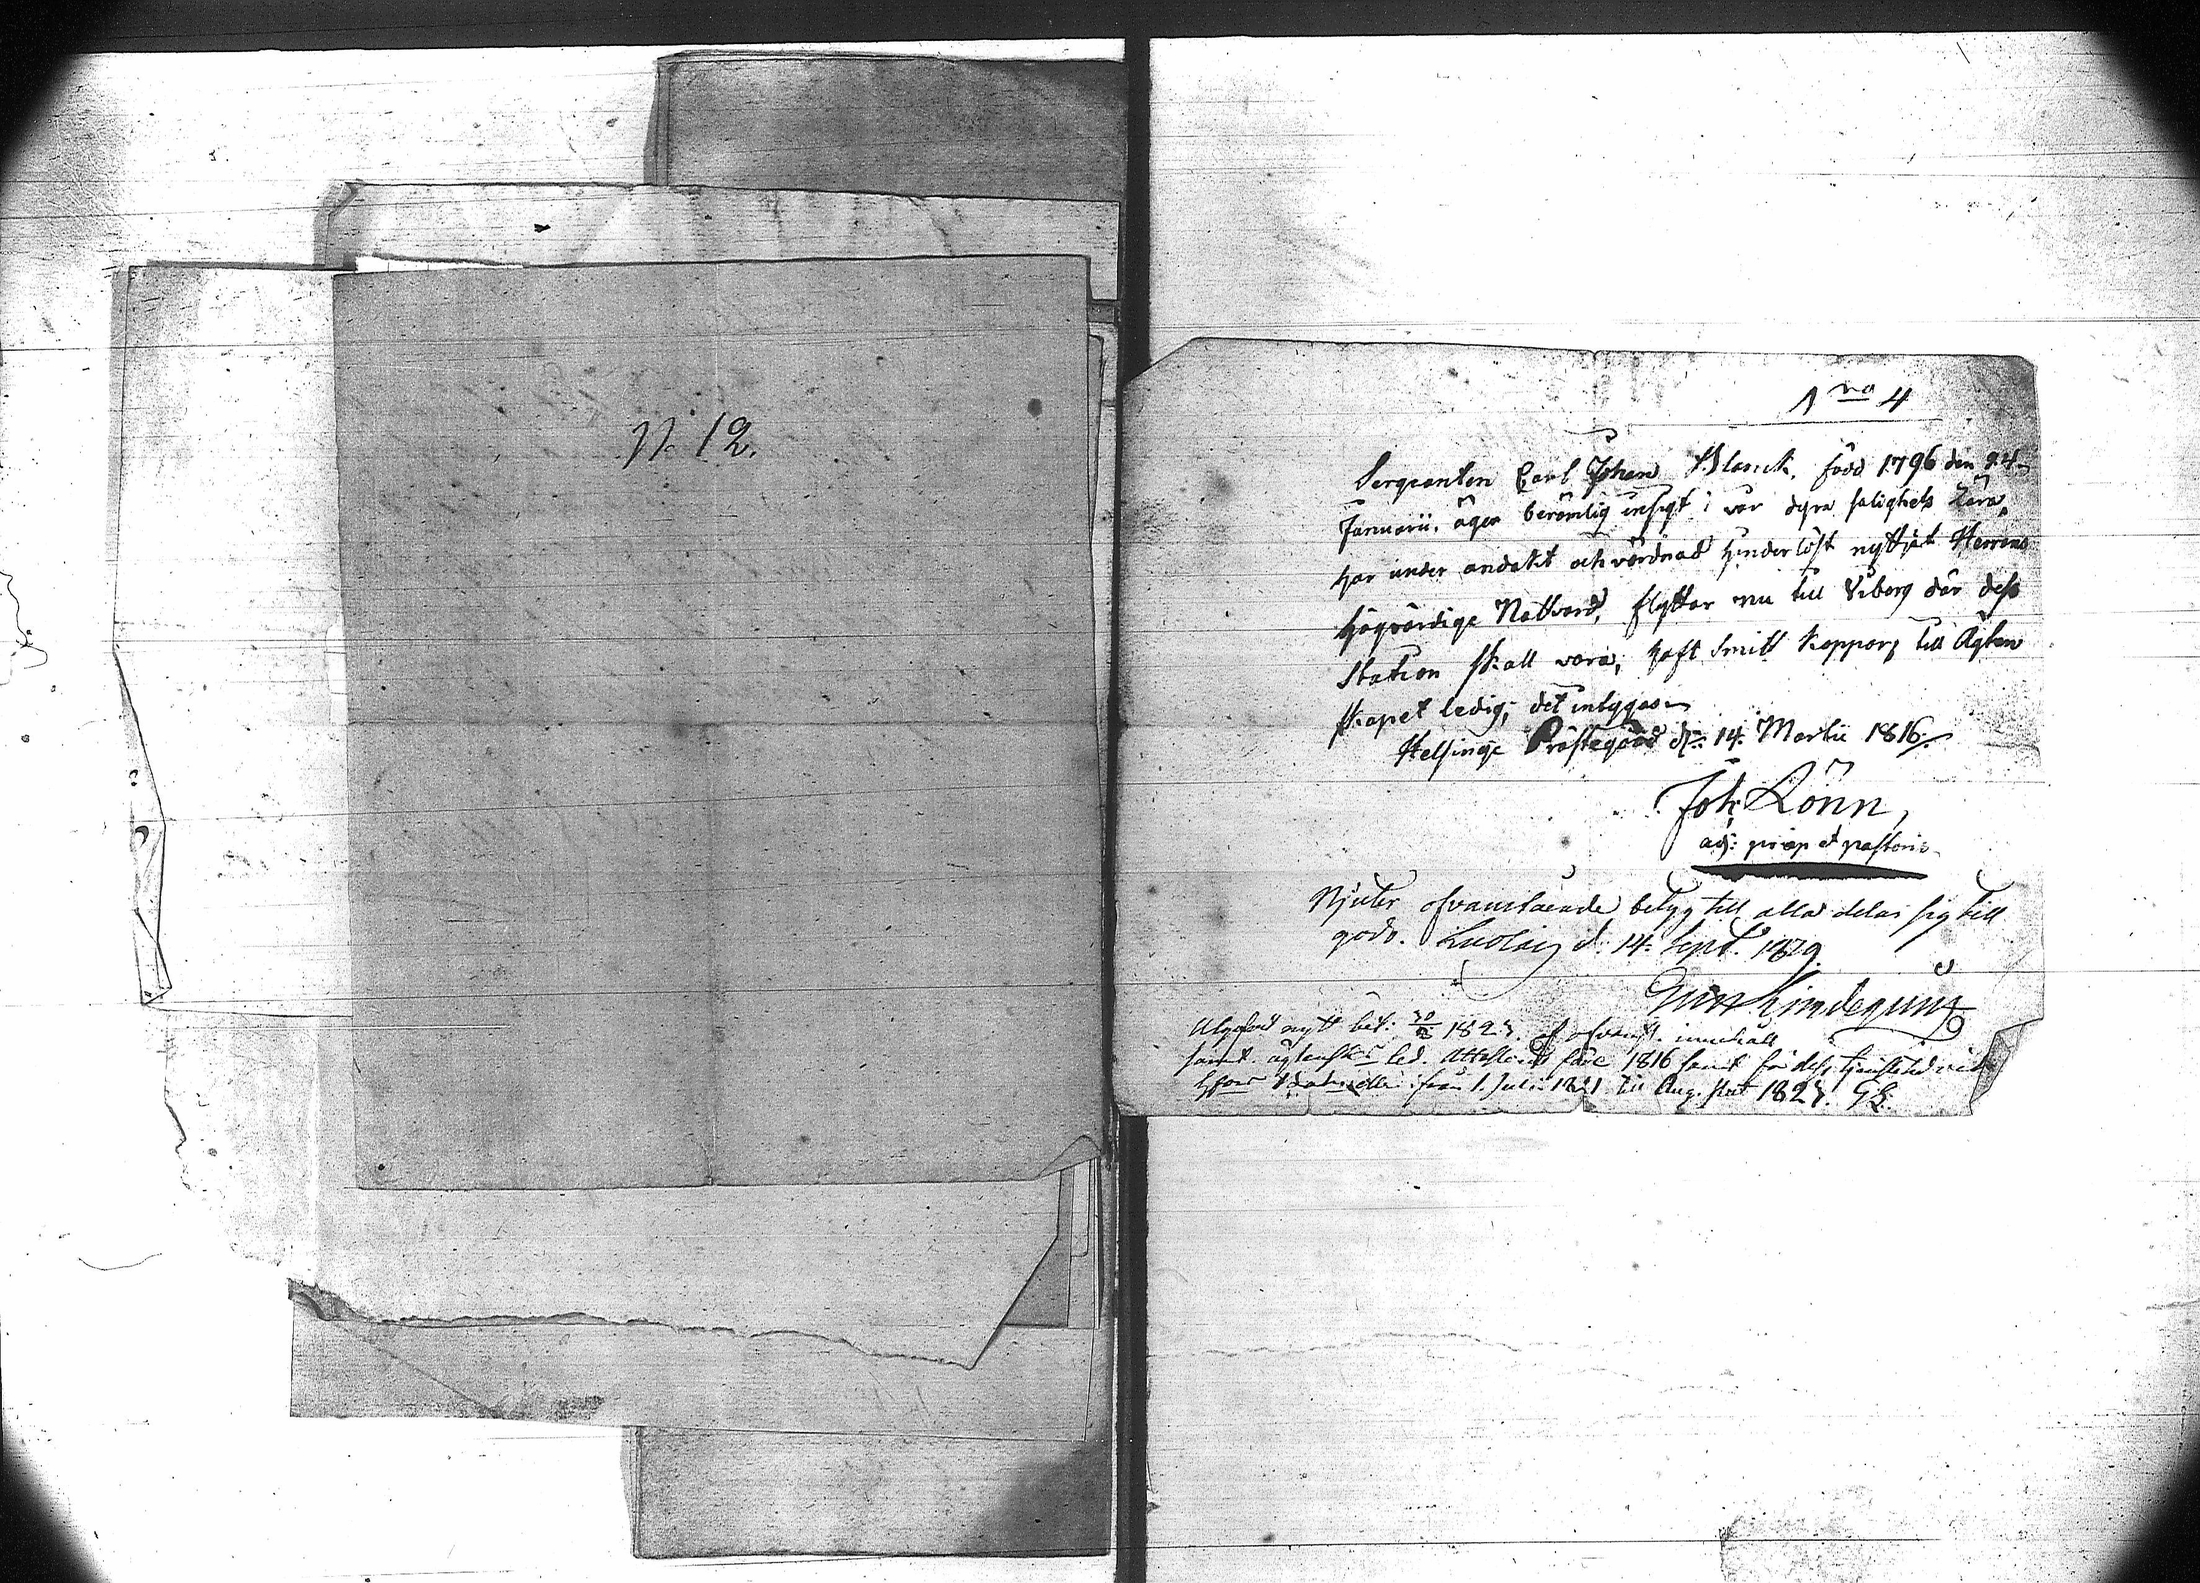 N:o 12.
1 no 4
Sergeanten Carl Johan Blanck, född 1796 den 24
Januarii. äger berömlig insigt i vår dyra salighets Lära,
har under andakt och vördnad hinderlöst nyttjat Herrens
högvärdige Nattvard, flyttar nu till Viborg där dess
Station skall vara; haft Smitt Koppor; till Ägten
skapet ledig; det intygas
Helsinge Prästegård d. 14. Martii 1816.
Joh. Lönn,
adj: præp et pastoris
Njuter ofvanstående betyg till alla delar sig till
godo. d. 14. Sept. 1819.
nytt bet: 1823. af ofvanst. innehåll
samt ägtensk. led. 1816 samt för dess
från 1. Julii 1821 till Aug. slut 1823. GL.